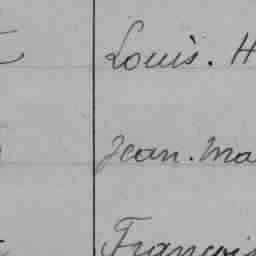 Louis. H
Jean. Ma
François